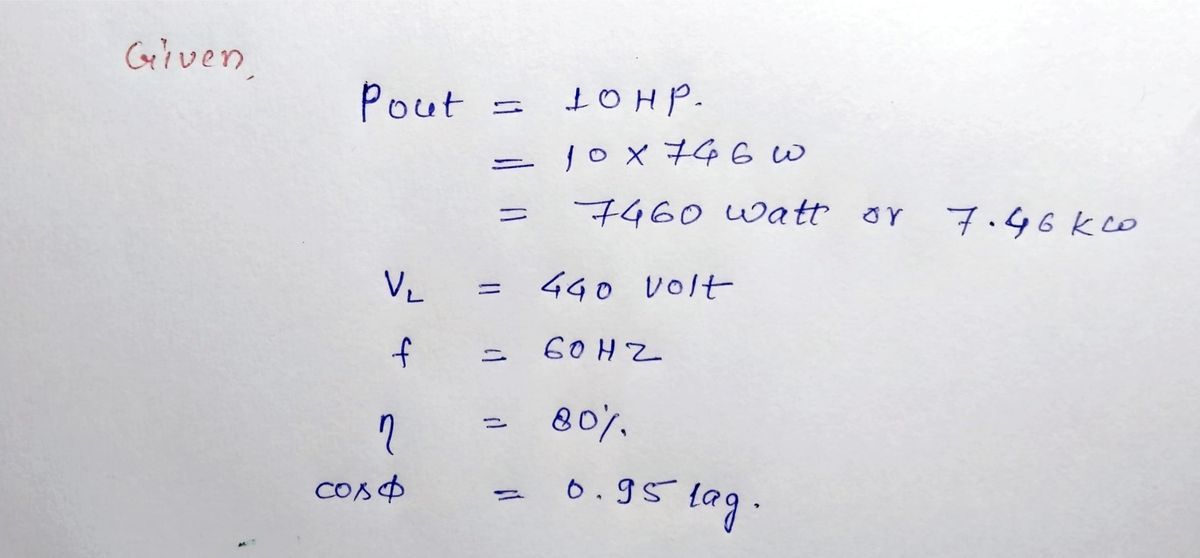 Given,
Pout = 10 HP.
= 10 x 746 w
= 7460 watt or 7.46 kw
VL = 440 volt
f = 60 HZ
η = 80%.
cosϕ = 0.95 lag.